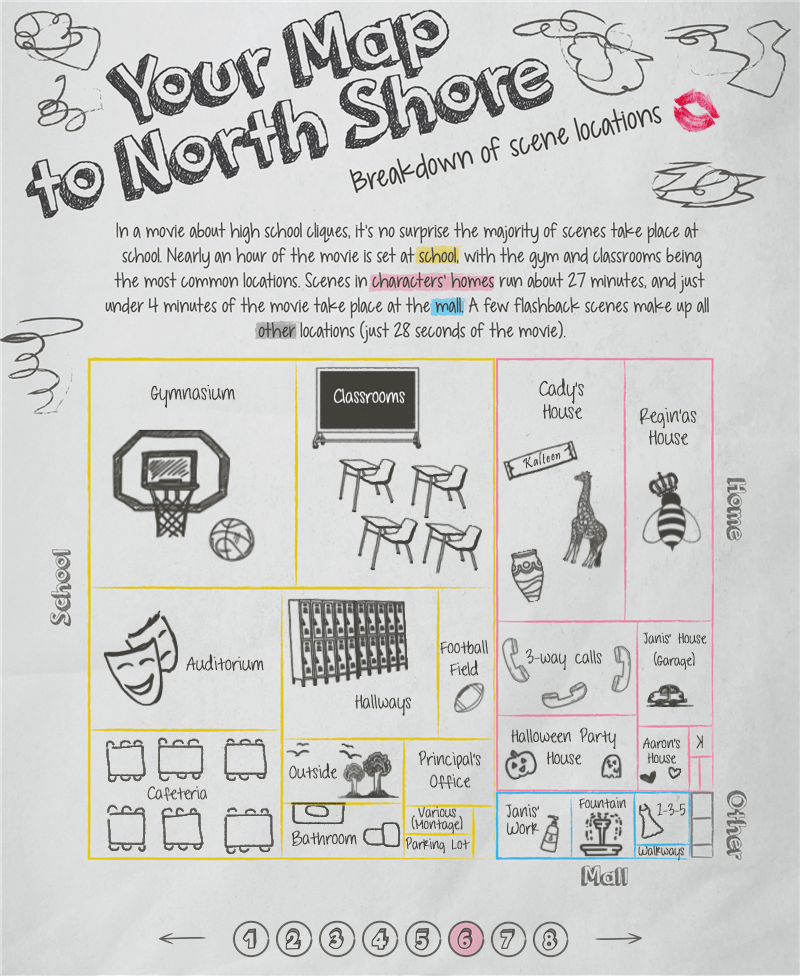 Your Map
to North Shore
Breakdown of scene locations
In a movie about high school cliques, it's no surprise the majority of scenes take place at
school. Nearly an hour of the movie is set at school, with the gym and classrooms being
the most common locations. Scenes in characters' homes run about 27 minutes, and just
under 4 minutes of the movie take place at the mall. A few flashback scenes make up all
other locations (just 28 seconds of the movie).
School
Gymnasium
Classrooms
Auditorium
Hallways
Football
Field
Cafeteria
Outside
Principal's
Office
Bathroom
Various
(Montage)
Parking Lot
Home
Cady's
House
Kalteen
Regin'as
House
3-way calls
Janis' House
(Garage)
Halloween Party
House
Aaron's
House
K
Janis'
Work
Fountain
1-3-5
Walkways
Mall
Other
1 2 3 4 5 6 7 8